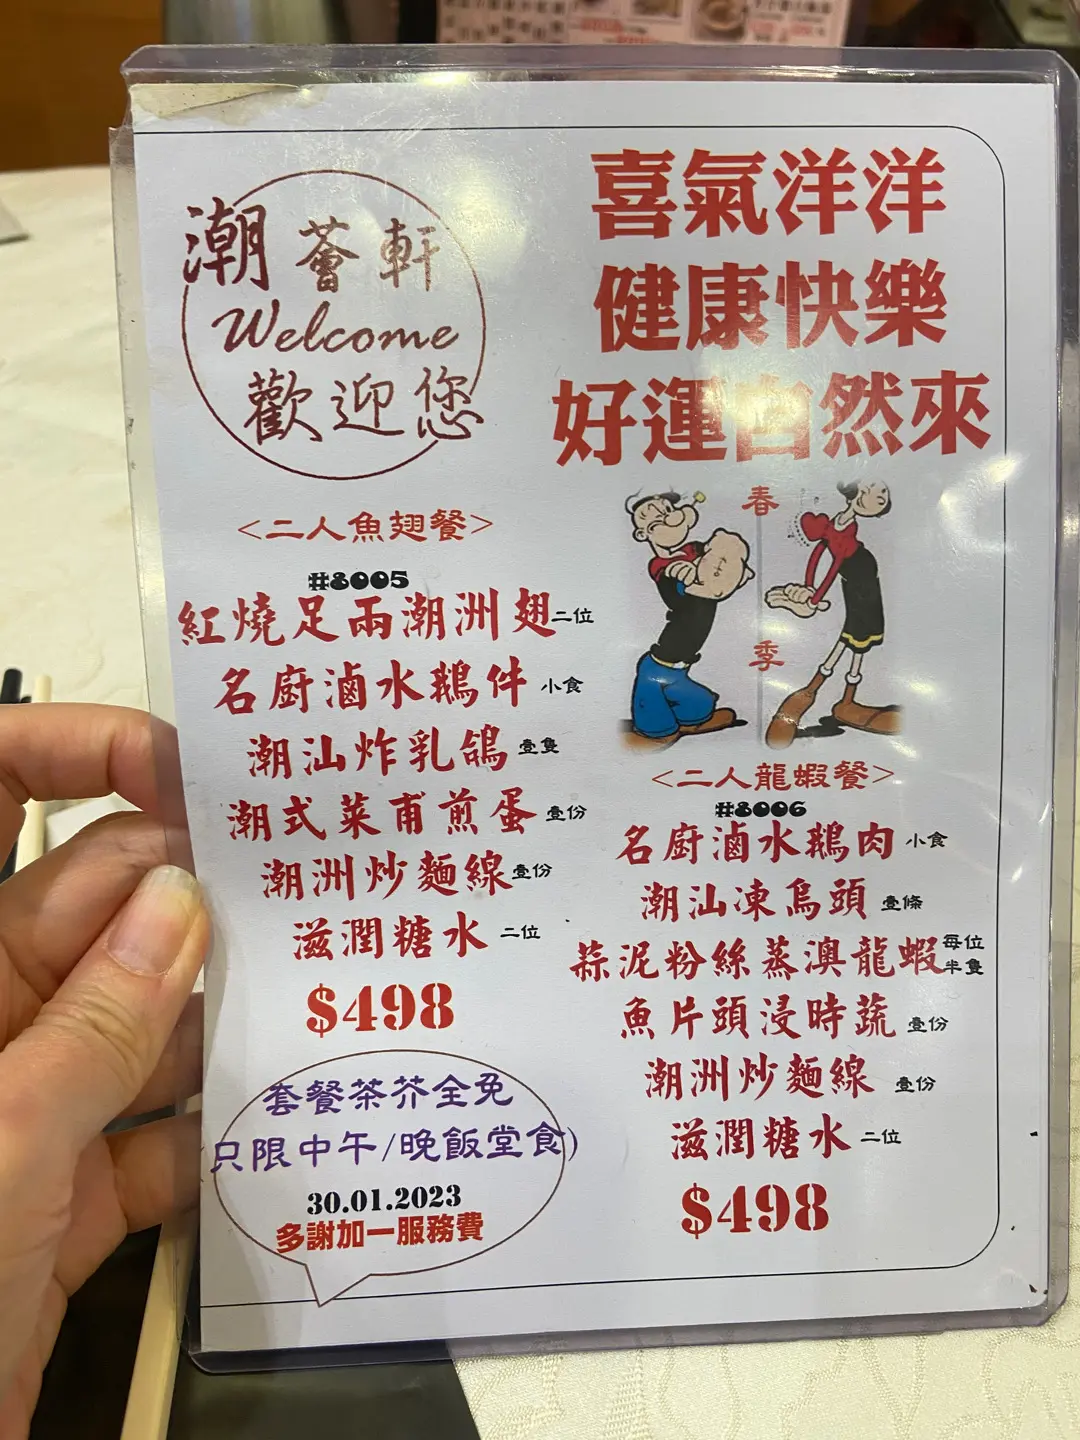 潮薈軒
Welcome
歡迎您
喜氣洋洋
健康快樂
好運自然來
春
季
<二人魚翅餐>
#8005
紅燒足兩潮洲翅 二位
名廚滷水鵝件 小食
潮汕炸乳鴿 壹隻
潮式菜甫煎蛋 壹份
潮洲炒麵線 壹份
滋潤糖水 二位
$498
套餐茶芥全免
只限中午/晚飯堂食)
30.01.2023
多謝加一服務費
<二人龍蝦餐>
#8006
名廚滷水鵝肉 小食
潮汕凍烏頭 壹條
蒜泥粉絲蒸澳龍蝦 每位半隻
魚片頭浸時蔬 壹份
潮洲炒麵線 壹份
滋潤糖水 二位
$498